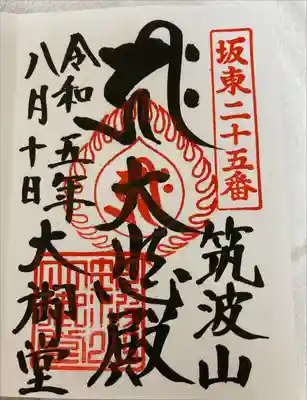 坂東二十五番
筑波山
大悲殿
大御堂
令和五年
八月十日